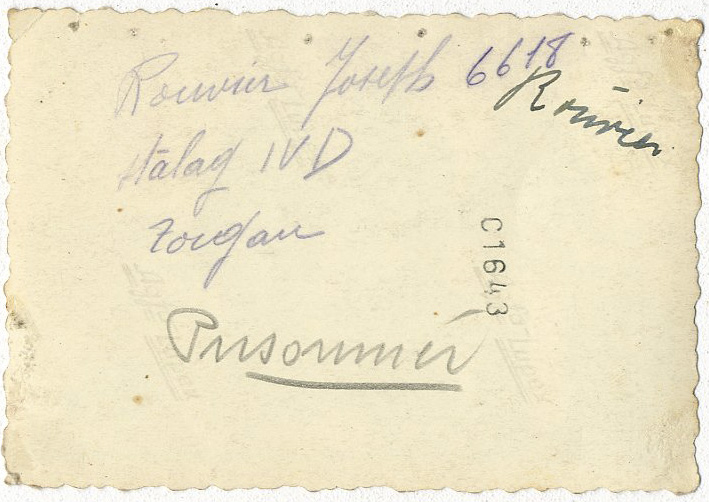 Rouvier Joseph 6618
Rouvier
Stalag IV D
Torgau
C1643
Prisonnier